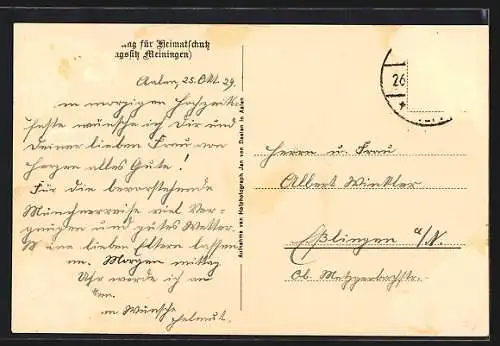 ung für Heimatschutz
ngssitz Meiningen)
Aalen, 25. Okt. 29.
m morgigen Hochzeits
feste wünsche ich Dir und
Deiner lieben Frau von
Herzen alles Gute!
Für die bevorstehende
Münchnerreise viel Ver-
gnügen und gutes Wetter.
lieben Eltern lassen
Morgen mittag
Uhr werde ich an
en.
n Wünsche
Helmut.
Aufnahme von Hofphotograph Jan van Daelen in Aalen
26
Herrn u. Frau
Albert Winkler
Eßlingen a/N.
Ob. Metzgerbachstr.